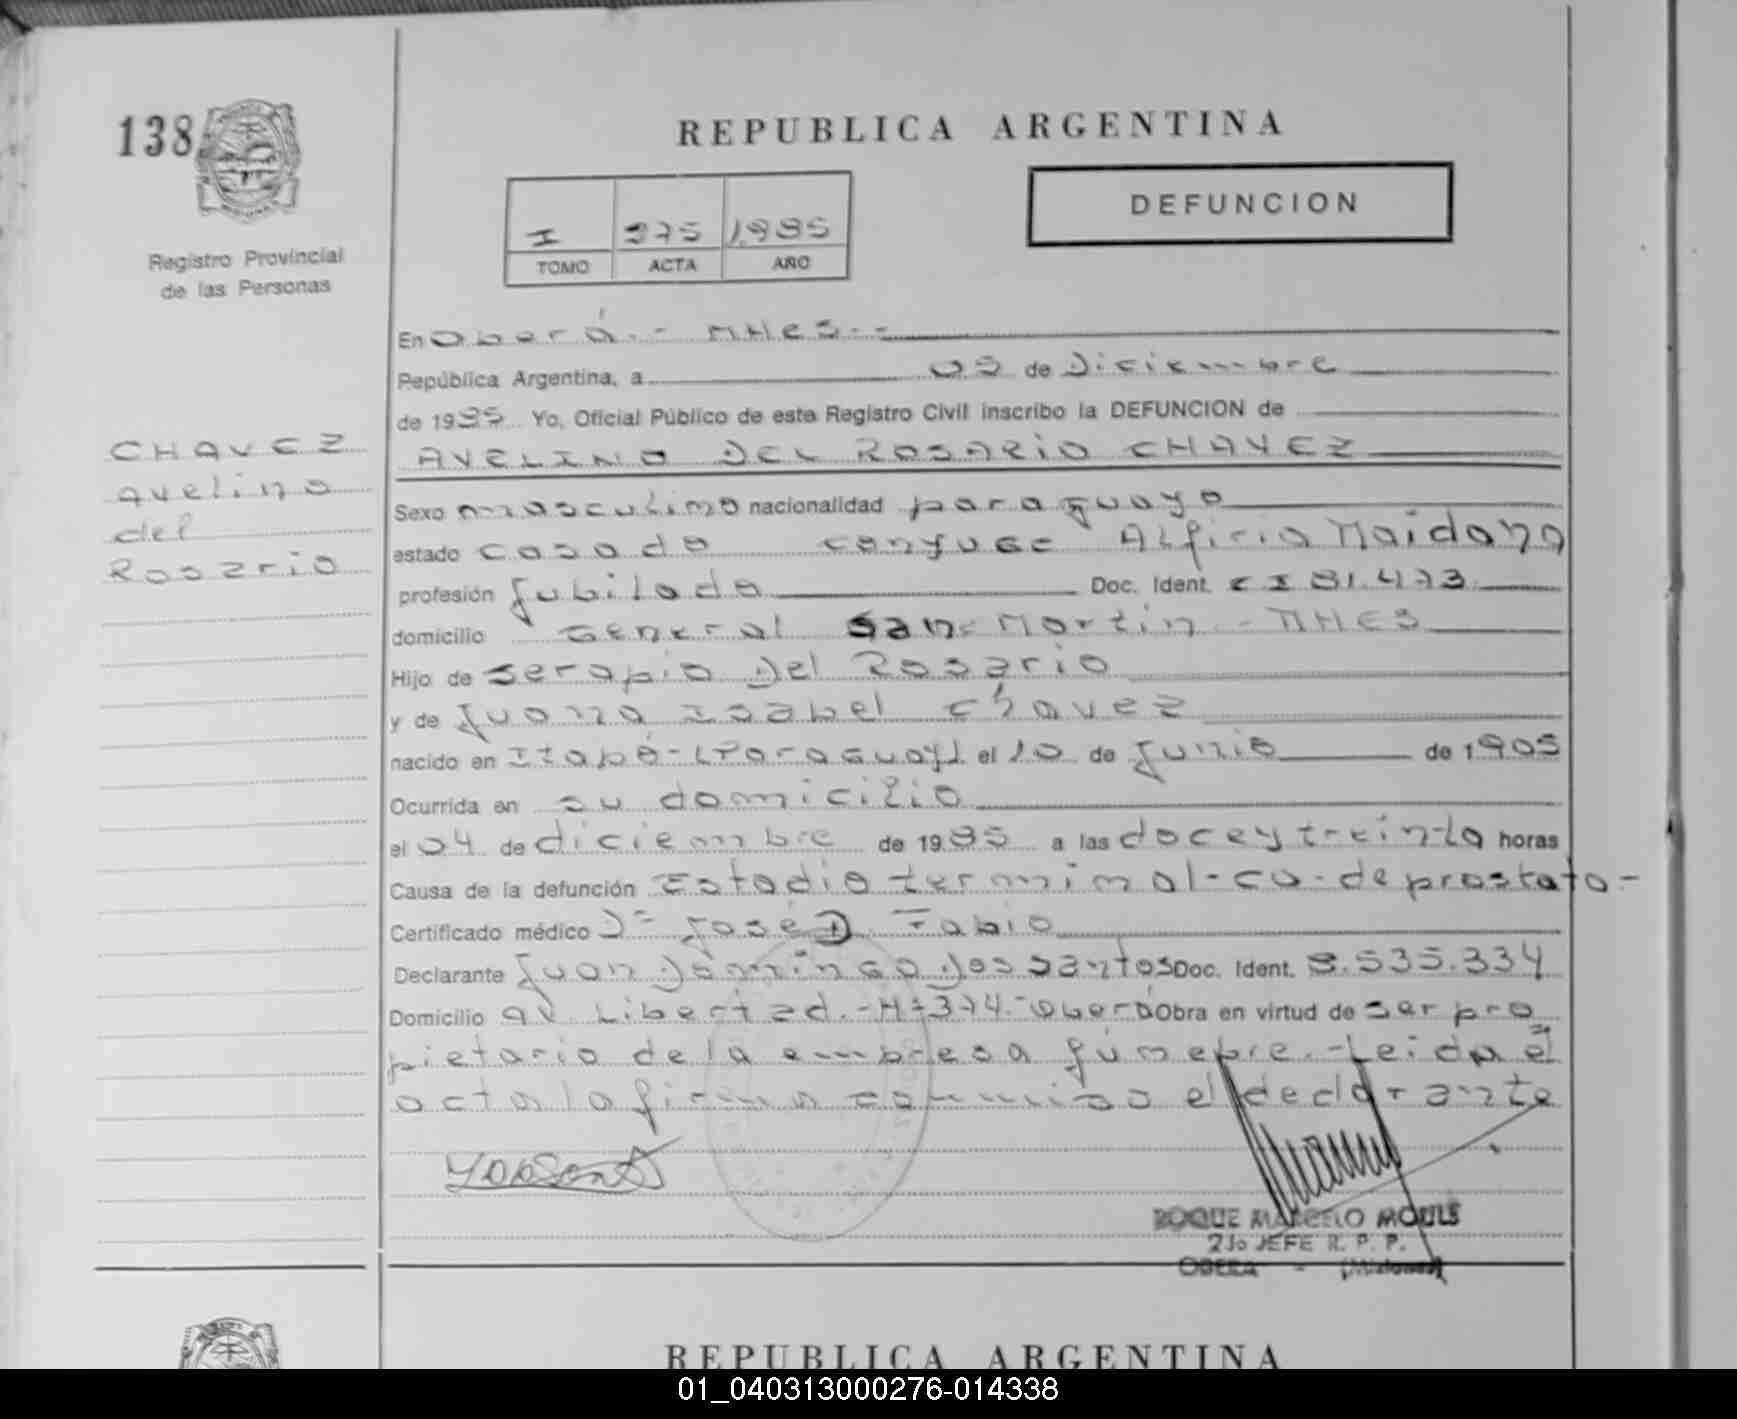 138
REPUBLICA ARGENTINA
DEFUNCION
I 275 1.995
TOMO ACTA AÑO
Registro Provincial
de las Personas
En Oberá.- MNES.-
República Argentina, a 05 de Diciembre
de 1995 Yo, Oficial Público de este Registro Civil inscribo la DEFUNCION de
AVELINO DEL ROSARIO CHAVEZ
CHAVEZ
Avelino
del
Rosario
Sexo masculino nacionalidad paraguayo
estado casado conyuge Alficia Maidana
profesión Jubilado Doc. Ident. CI 81.473
domicilio General San Martín - MNES
Hijo de Serapio Del Rosario
y de Juana Isabel Chavez
nacido en Itapé-(Paraguay) el 10 de Junio de 1905
Ocurrida en su domicilio
el 04 de diciembre de 1995 a las doce y treinta horas
Causa de la defunción Estadio terminal-ca-de prostata-
Certificado médico Dr José D. Fabio
Declarante Juan Domingo Dos Santos Doc. Ident. 8.535.334
Domicilio av Libertad.-Nº 374.-Oberá Obra en virtud de ser pro
pietario de la empresa fúnebre.-Leida el
acta la firma conmigo el declarante
ROQUE MARCELO MOULS
2do JEFE R. P. P.
OBERA - (Misiones)
REPUBLICA ARGENTINA
01_040313000276-014338